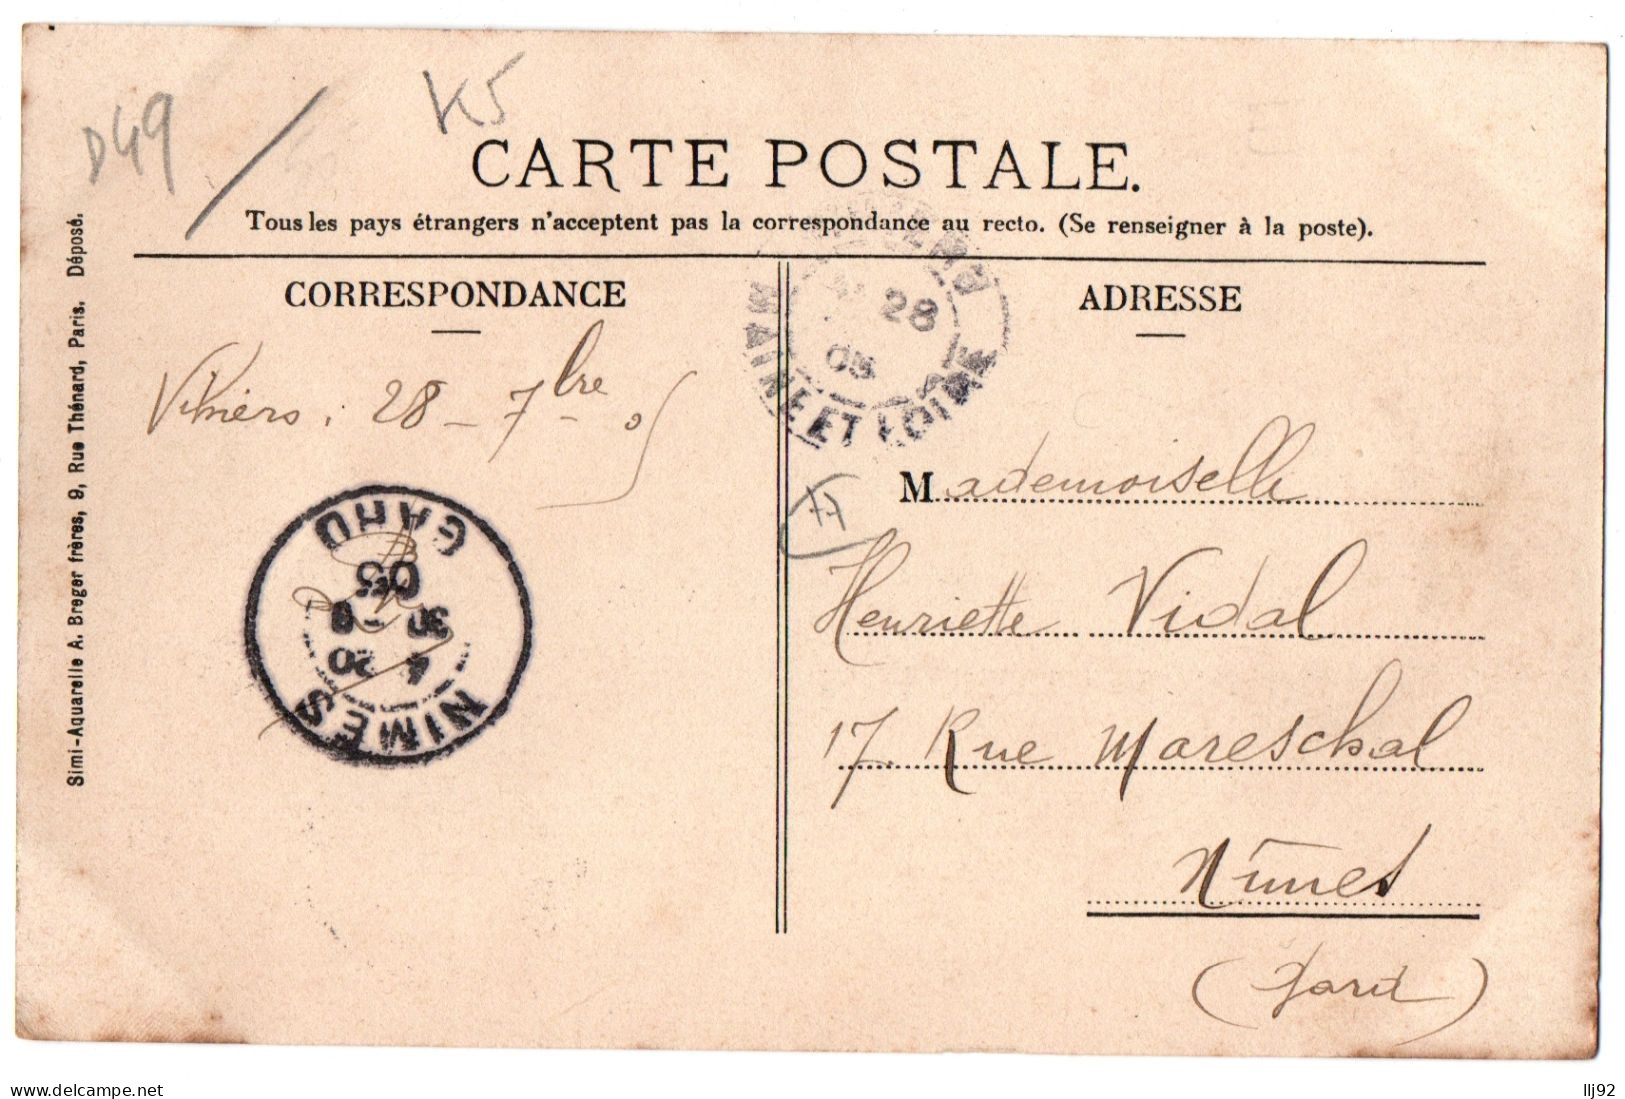 D49
K5
CARTE POSTALE.
Tous les pays étrangers n'acceptent pas la correspondance au recto. (Se renseigner à la poste).
CORRESPONDANCE
ADRESSE
Vihiers, 28 - 7bre 05
28
05
MAINE ET LOIRE
Mademoiselle
Henriette Vidal
17. Rue Mareschal
Nîmes
(Gard)
NIMES
4 20
30 - 9
05
GARD
Simi-Aquarelle A. Breger frères, 9, Rue Thénard, Paris. Déposé.
www.delcampe.net
llj92